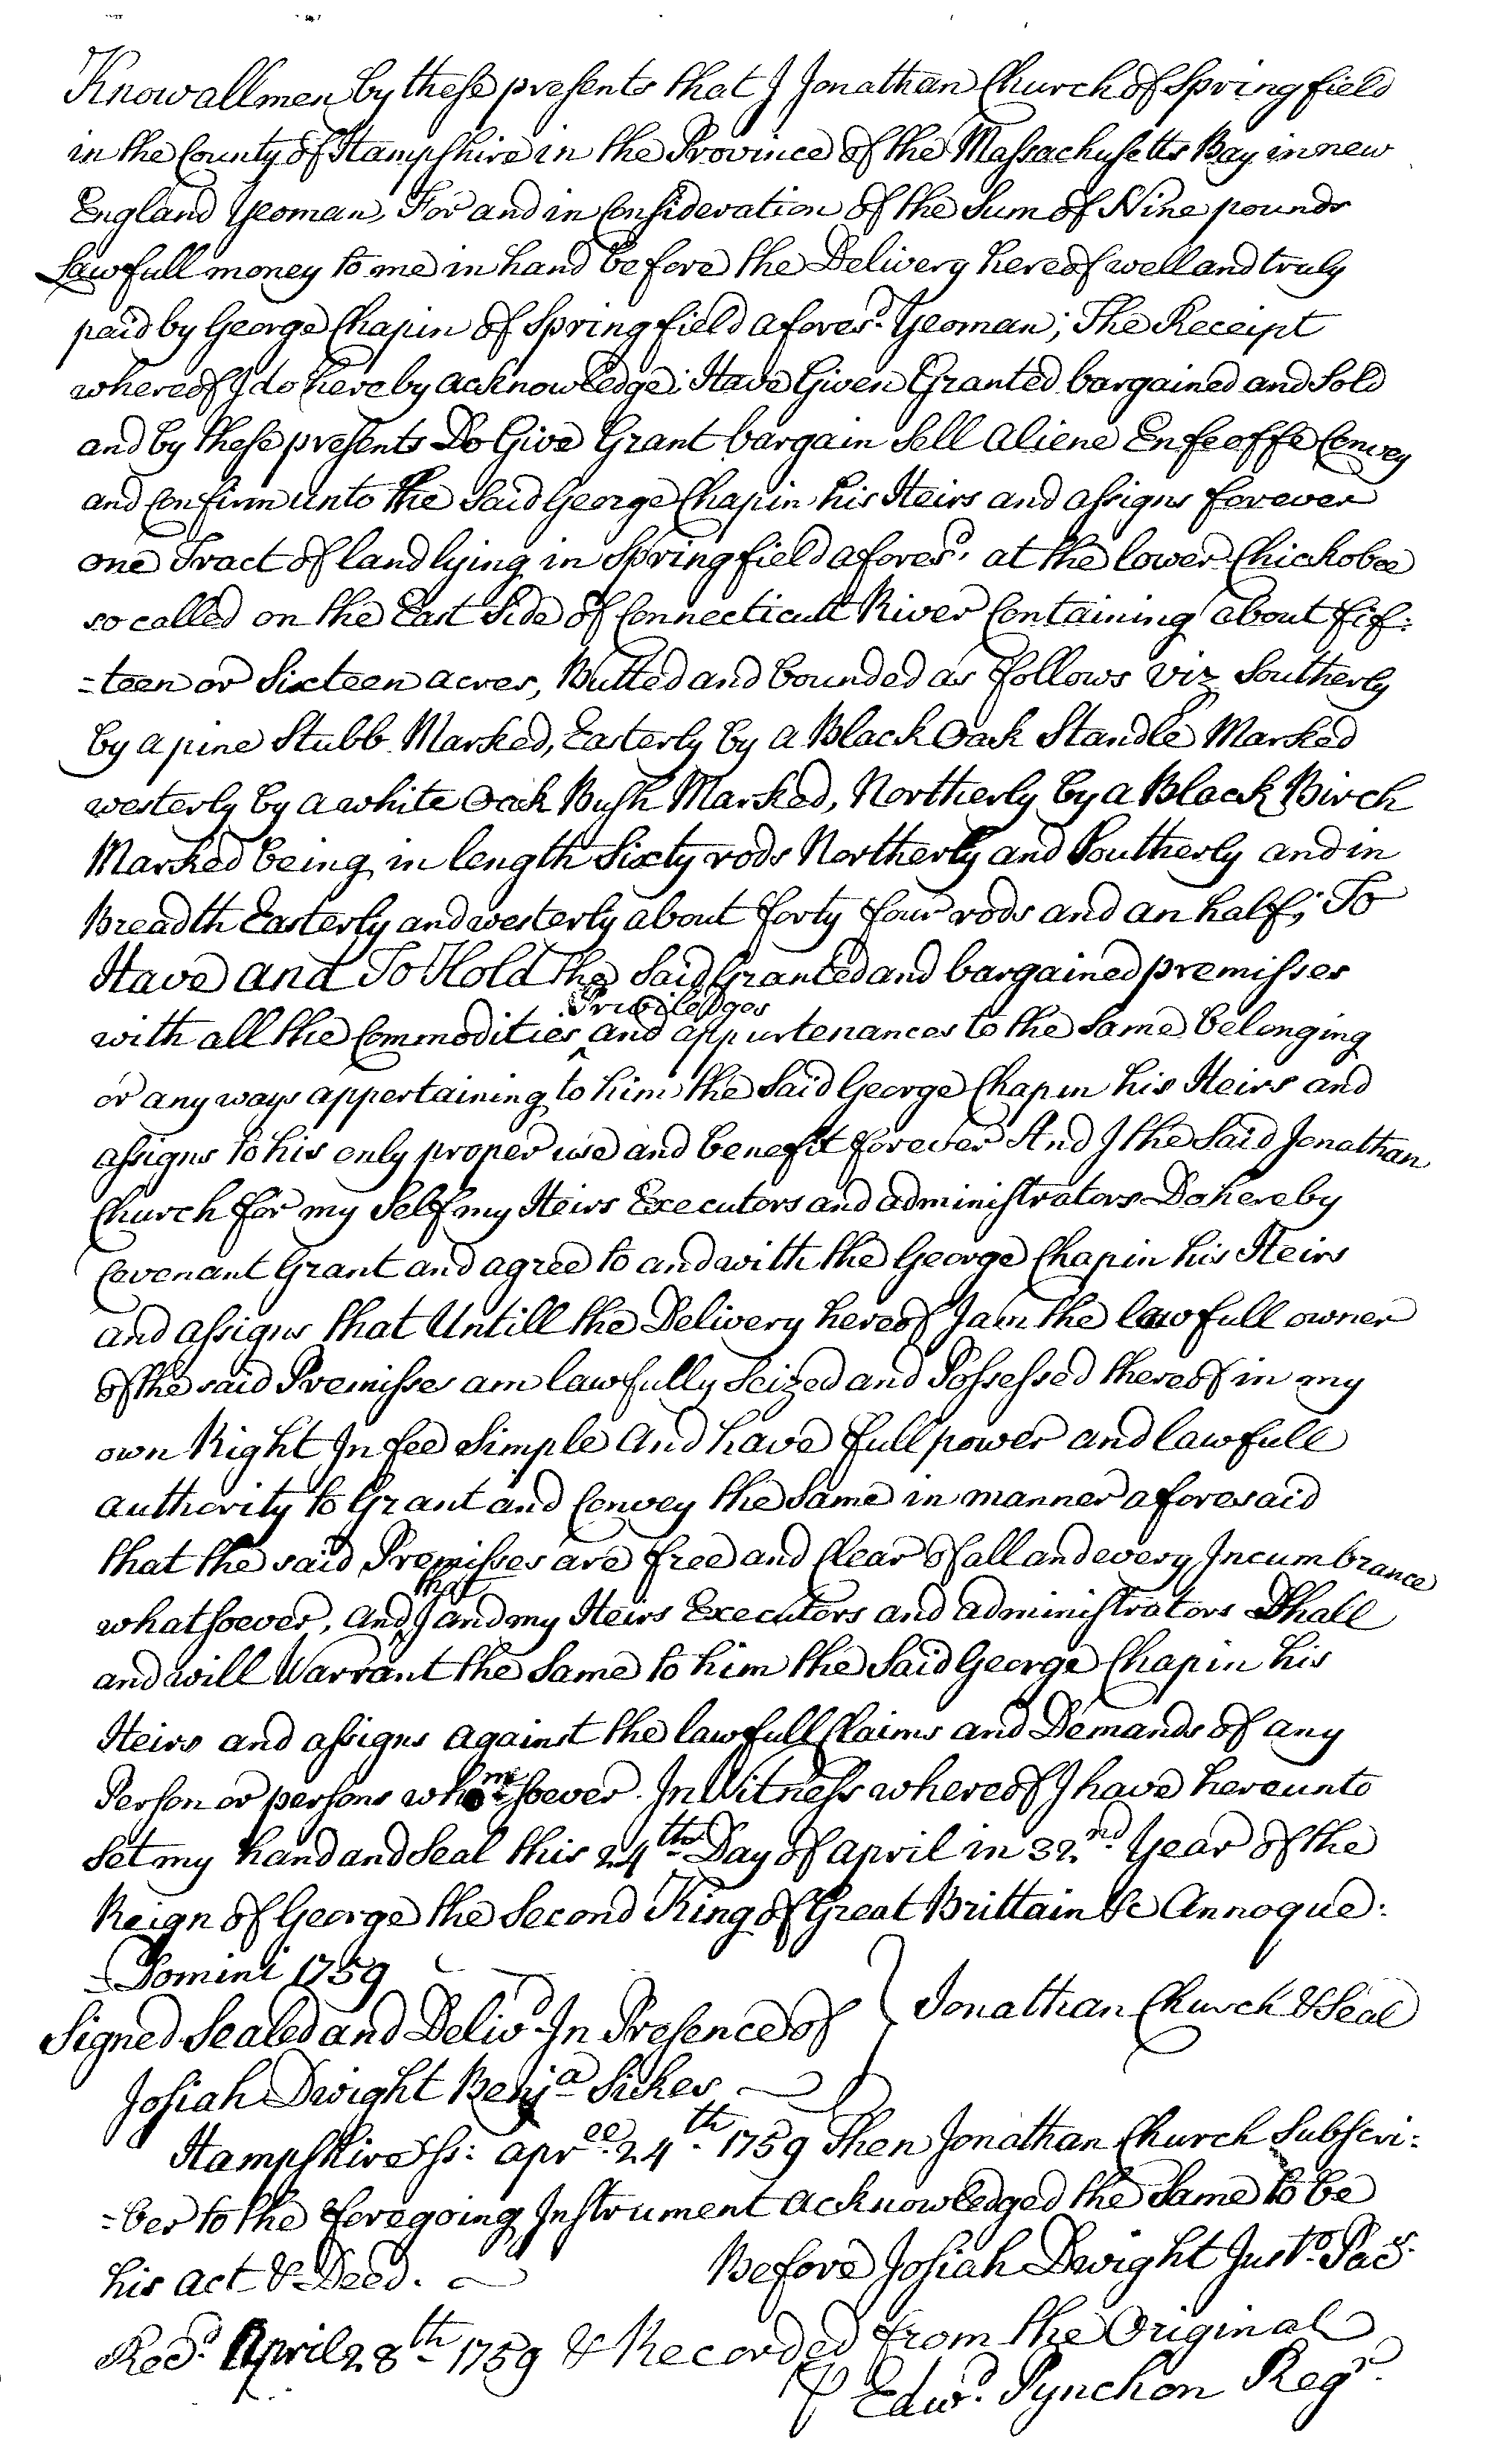 Know all men by these presents that I Jonathan Church of Springfield
in the County of Hampshire in the Province of the Massachusetts Bay in new
England Yeoman, For and in Consideration of the Sum of Nine pounds
Lawfull money to me in hand before the Delivery hereof well and truly
paid by George Chapin of Springfield afores.d Yeoman; The Receipt
whereof I do hereby acknowledge: Have Given Granted bargained and Sold
and by these presents Do Give Grant bargain Sell aliene Enfeoffe Convey
and Confirm unto the Said George Chapin his Heirs and assigns forever
one Tract of land lying in Springfield afores.d at the lower Chickobee
so called on the East Side of Connecticutt River Containing about fif:
=teen or Sixteen acres, Butted and bounded as follows viz Southerly
by a pine Stubb Marked, Easterly by a Black Oack Standle Marked
westerly by a white Oack Bush Marked, Northerly by a Black Birch
Marked being in length Sixty rods Northerly and Southerly and in
Breadth Easterly and westerly about forty four rods and an half; To
Have and To Hold the Said Granted and bargained premisses
Priviledges
with all the Commodities ^ and appurtenances to the same belonging
or any ways appertaining to him the Said George Chapin his Heirs and
assigns to his only proper use and benefit forever And I the Said Jonathan
Church for my Self my Heirs Executors and administrators Do hereby
Covenant Grant and agree to and with the George Chapin his Heirs
and assigns that Untill the Delivery hereof I am the lawfull owner
of the said Premisses am lawfully Seized and Possessed thereof in my
own Right In fee Simple And have full power and lawfull
authority to Grant and Convey the same in manner aforesaid
that the said Premisses are free and Clear of all and every Incumbrance
that
whatsoever, and ^ I and my Heirs Executors and administrators Shall
and will Warrant the same to him the Said George Chapin his
Heirs and assigns against the lawfull Claims and Demands of any
Person or persons whomsoever. In Witness whereof I have hereunto
Set my hand and Seal this 24th Day of april in 32nd Year of the
Reign of George the Second King of Great Brittain &c Annoque:
=Domini 1759
Signed Sealed and Deliv.d In Presence of } Jonathan Church & Seal
Josiah Dwight Benj.a Sikes
Hampshire Ss: apr.ll 24th 1759 Then Jonathan Church Subscri:
=ber to the foregoing Instrument acknowledged the same to be
his act & Deed. Before Josiah Dwight Just.o Pac.s
Rec.d April 28th 1759 & Recorded from the Original
P Edw.d Pynchon Reg.r